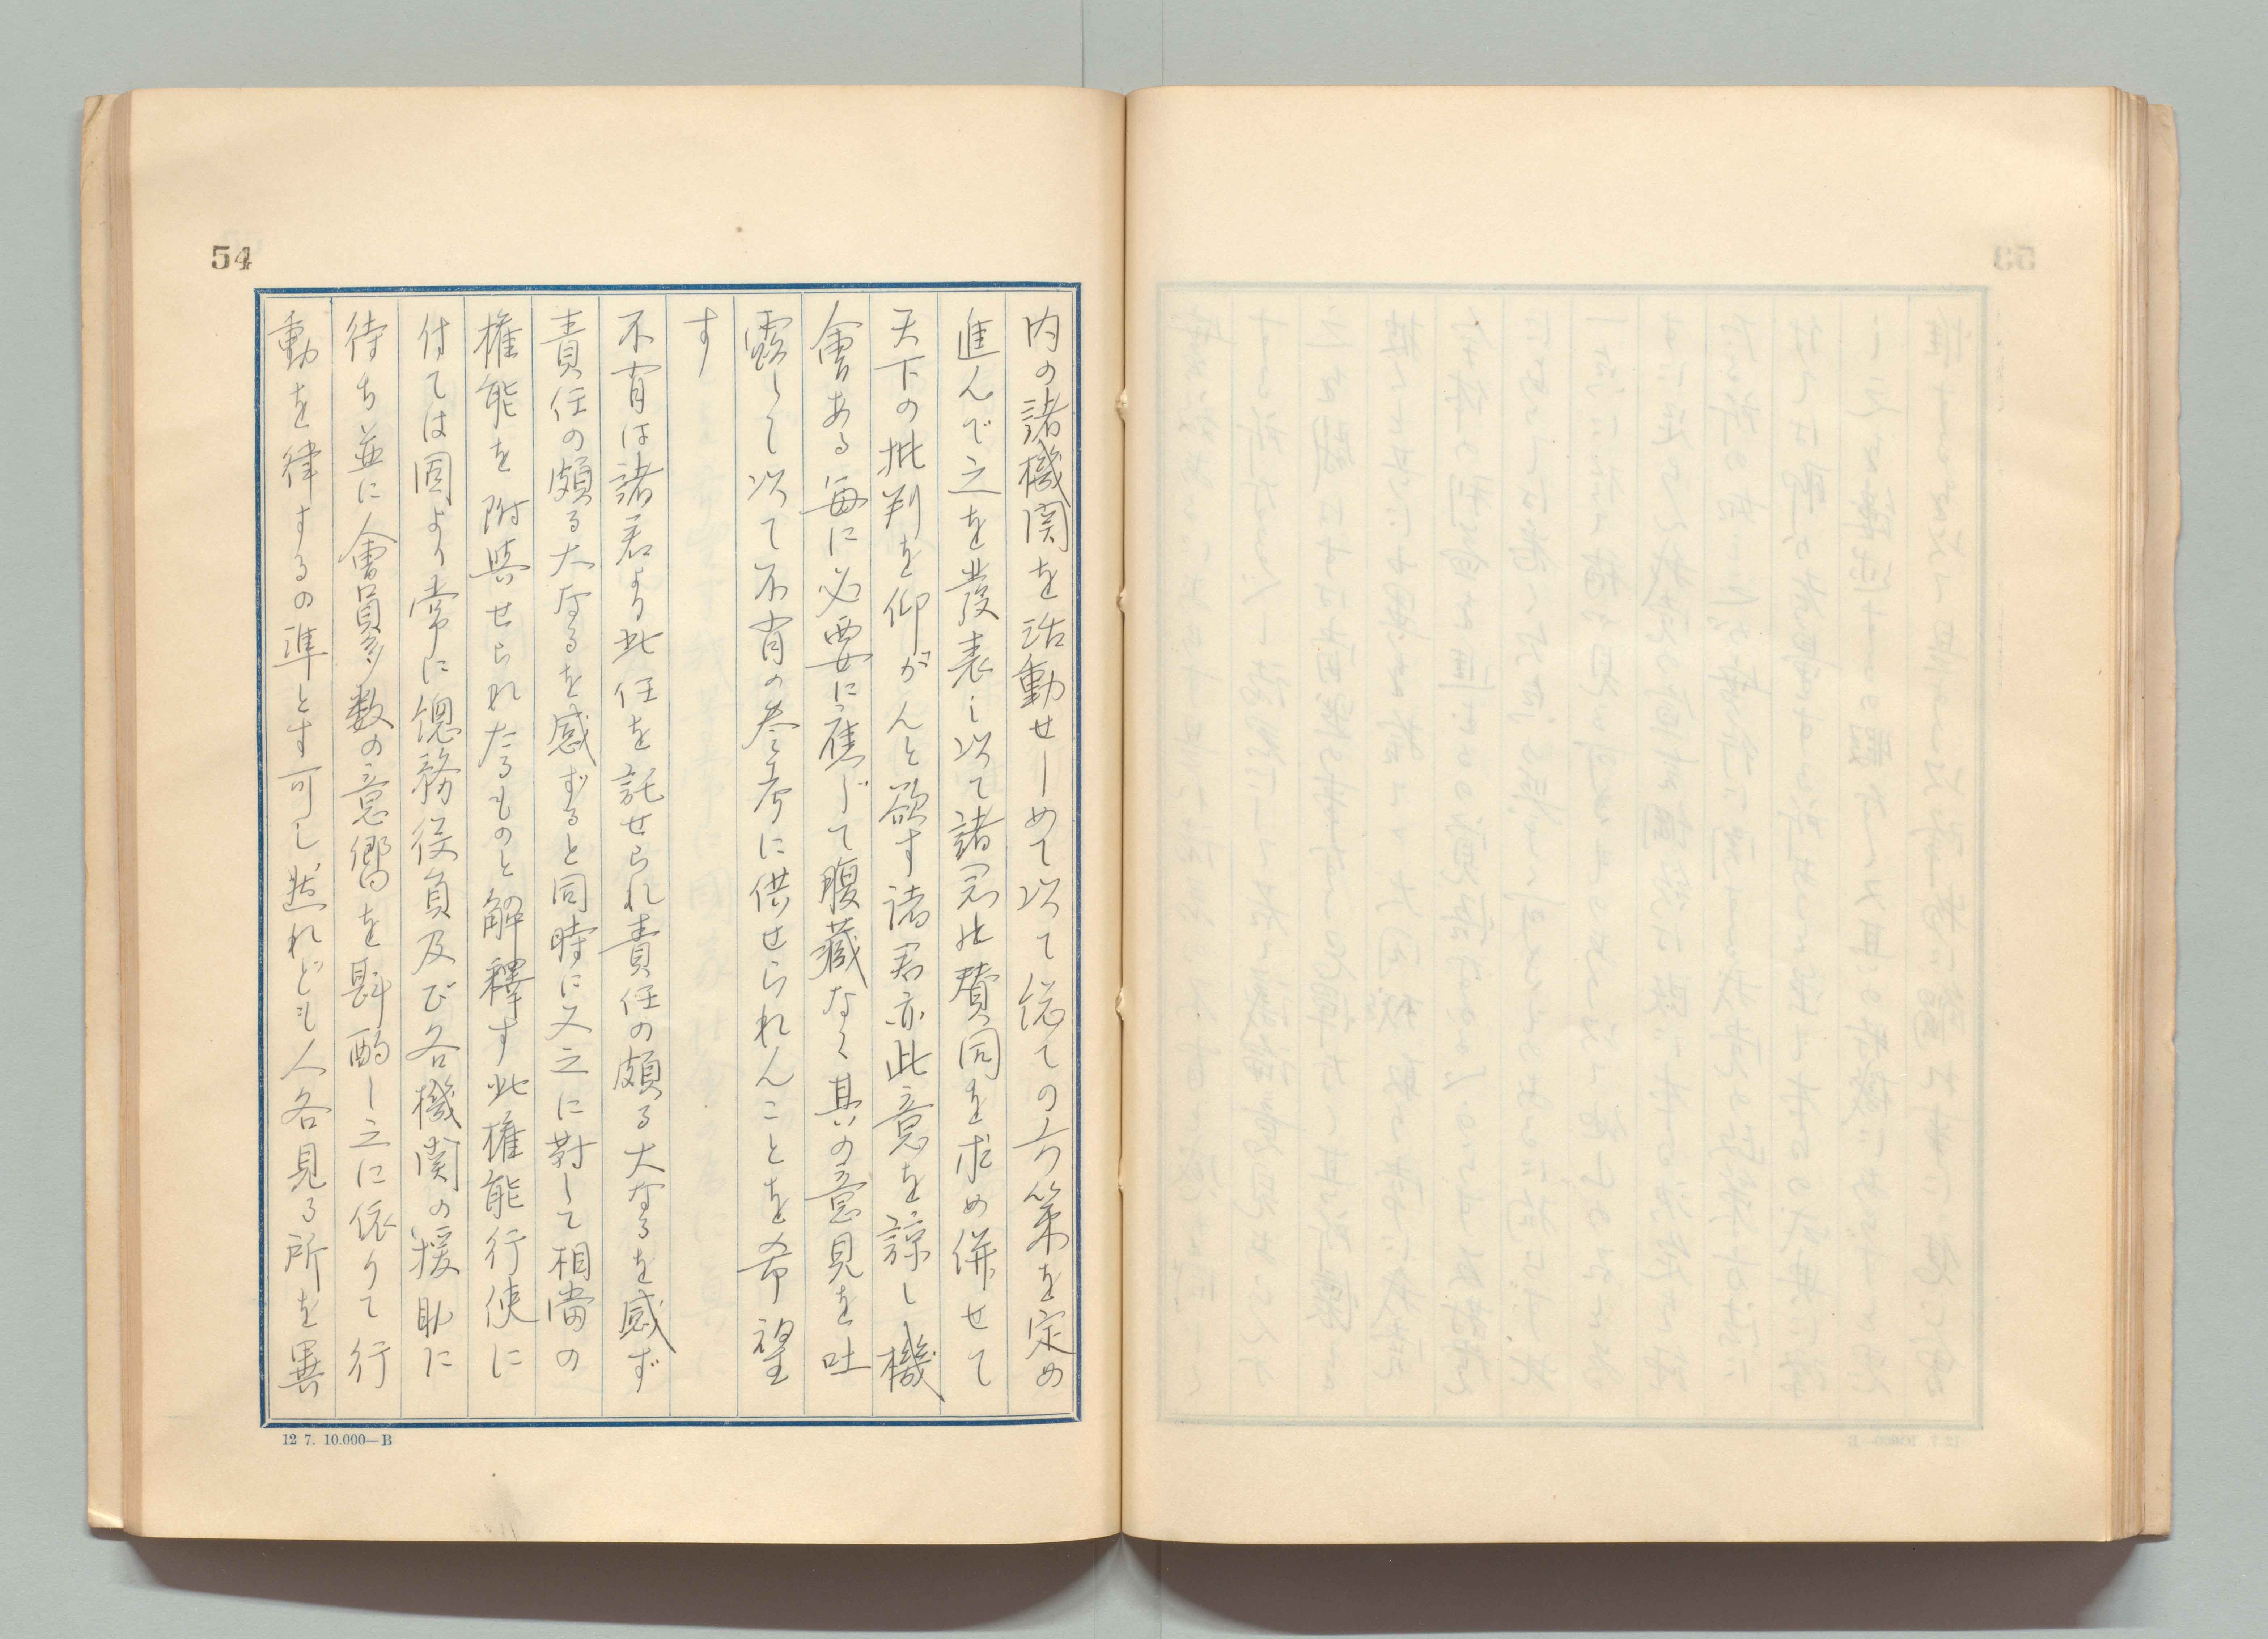 54
内の諸機関を活動せしめて以て総ての方策を定め
進んで之を發表し以て諸君此賛同を求め併せて
天下の批判を仰がんと欲す諸君亦此意を諒し機
會ある毎に必要に應じて腹藏なく其の意見を吐
露して以て不肖の参考に供せられんことを希望
す
不肖は諸君より此任を託せられ責任の頗る大なるを感ず
責任の頗る大なるを感ずると同時に又之に對して相當の
権能を附與せられたるものと解釋す此権能行使に
付ては固より常に総務役員及び各機関の援助に
待ち並に會員多数の意嚮を斟酌し之に依りて行
動を律するの準とす可し然れども人各見る所を異
12 7. 10.000—B